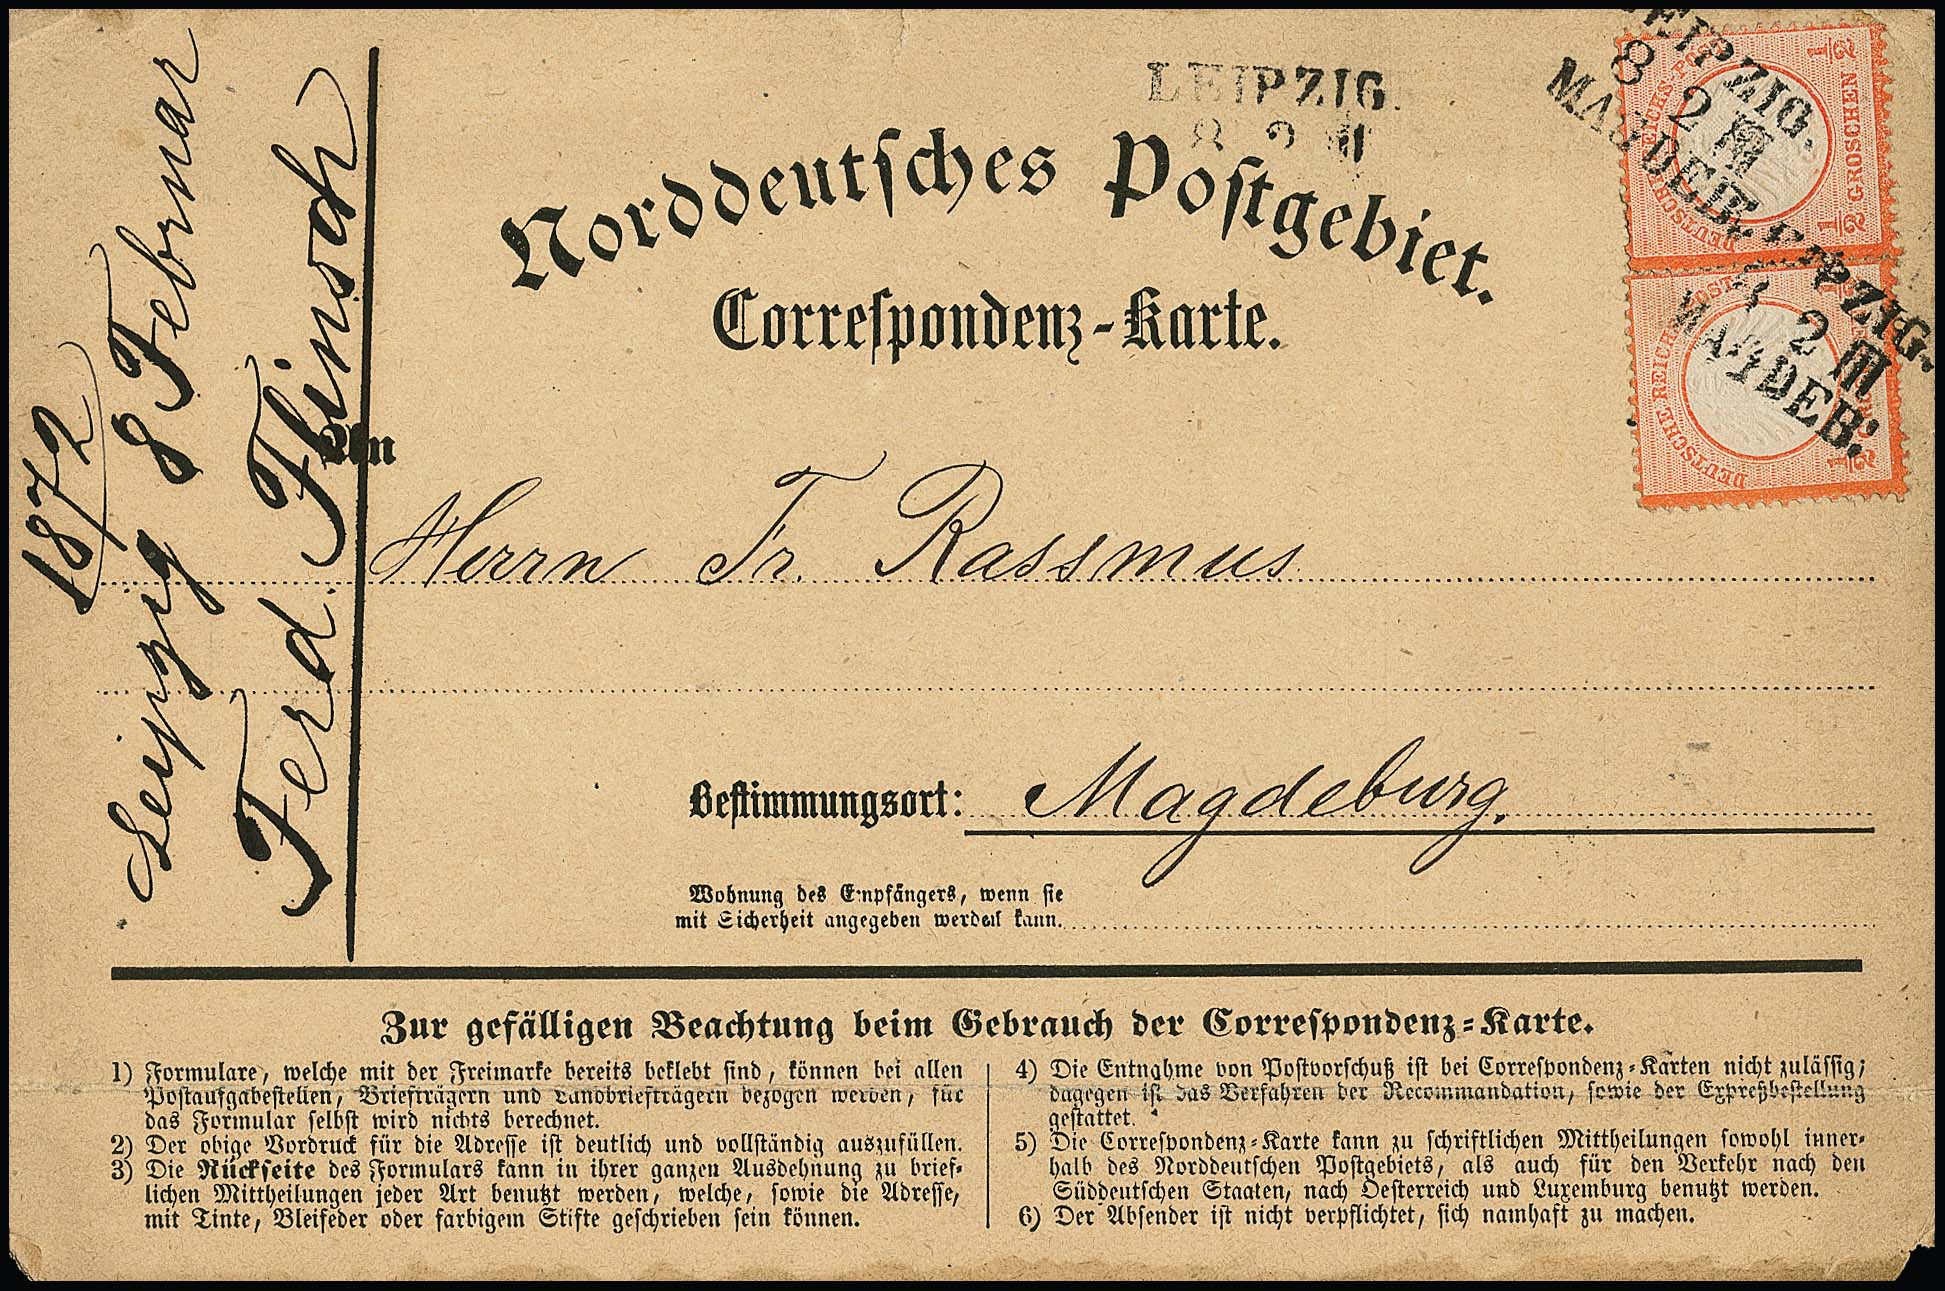 LEIPZIG.
8 2 III
LEIPZIG.
8 2 III
MAGDEB.
LEIPZIG.
8 2 III
MAGDEB:
DEUTSCHE REICHS-POST
1/2 GROSCHEN 1/2
DEUTSCHE REICHS-POST
1/2 GROSCHEN 1/2
Norddeutsches Postgebiet.
Correspondenz-Karte.
1872
Leipzig 8 Februar
Ferd. Flinsch
An
Herrn Fr. Rassmus
Bestimmungsort: Magdeburg.
Wohnung des Empfängers, wenn sie
mit Sicherheit angegeben werden kann.
Zur gefälligen Beachtung beim Gebrauch der Correspondenz-Karte.
1) Formulare, welche mit der Freimarke bereits beklebt sind, können bei allen
Postaufgabestellen, Briefträgern und Landbriefträgern bezogen werden, für
das Formular selbst wird nichts berechnet.
2) Der obige Vordruck für die Adresse ist deutlich und vollständig auszufüllen.
3) Die Rückseite des Formulars kann in ihrer ganzen Ausdehnung zu brief-
lichen Mittheilungen jeder Art benutzt werden, welche, sowie die Adresse,
mit Tinte, Bleifeder oder farbigem Stifte geschrieben sein können.
4) Die Entnahme von Postvorschuß ist bei Correspondenz-Karten nicht zulässig;
dagegen ist das Verfahren der Recommandation, sowie der Expreßbestellung
gestattet.
5) Die Correspondenz-Karte kann zu schriftlichen Mittheilungen sowohl inner-
halb des Norddeutschen Postgebiets, als auch für den Verkehr nach den
Süddeutschen Staaten, nach Oesterreich und Luxemburg benutzt werden.
6) Der Absender ist nicht verpflichtet, sich namhaft zu machen.